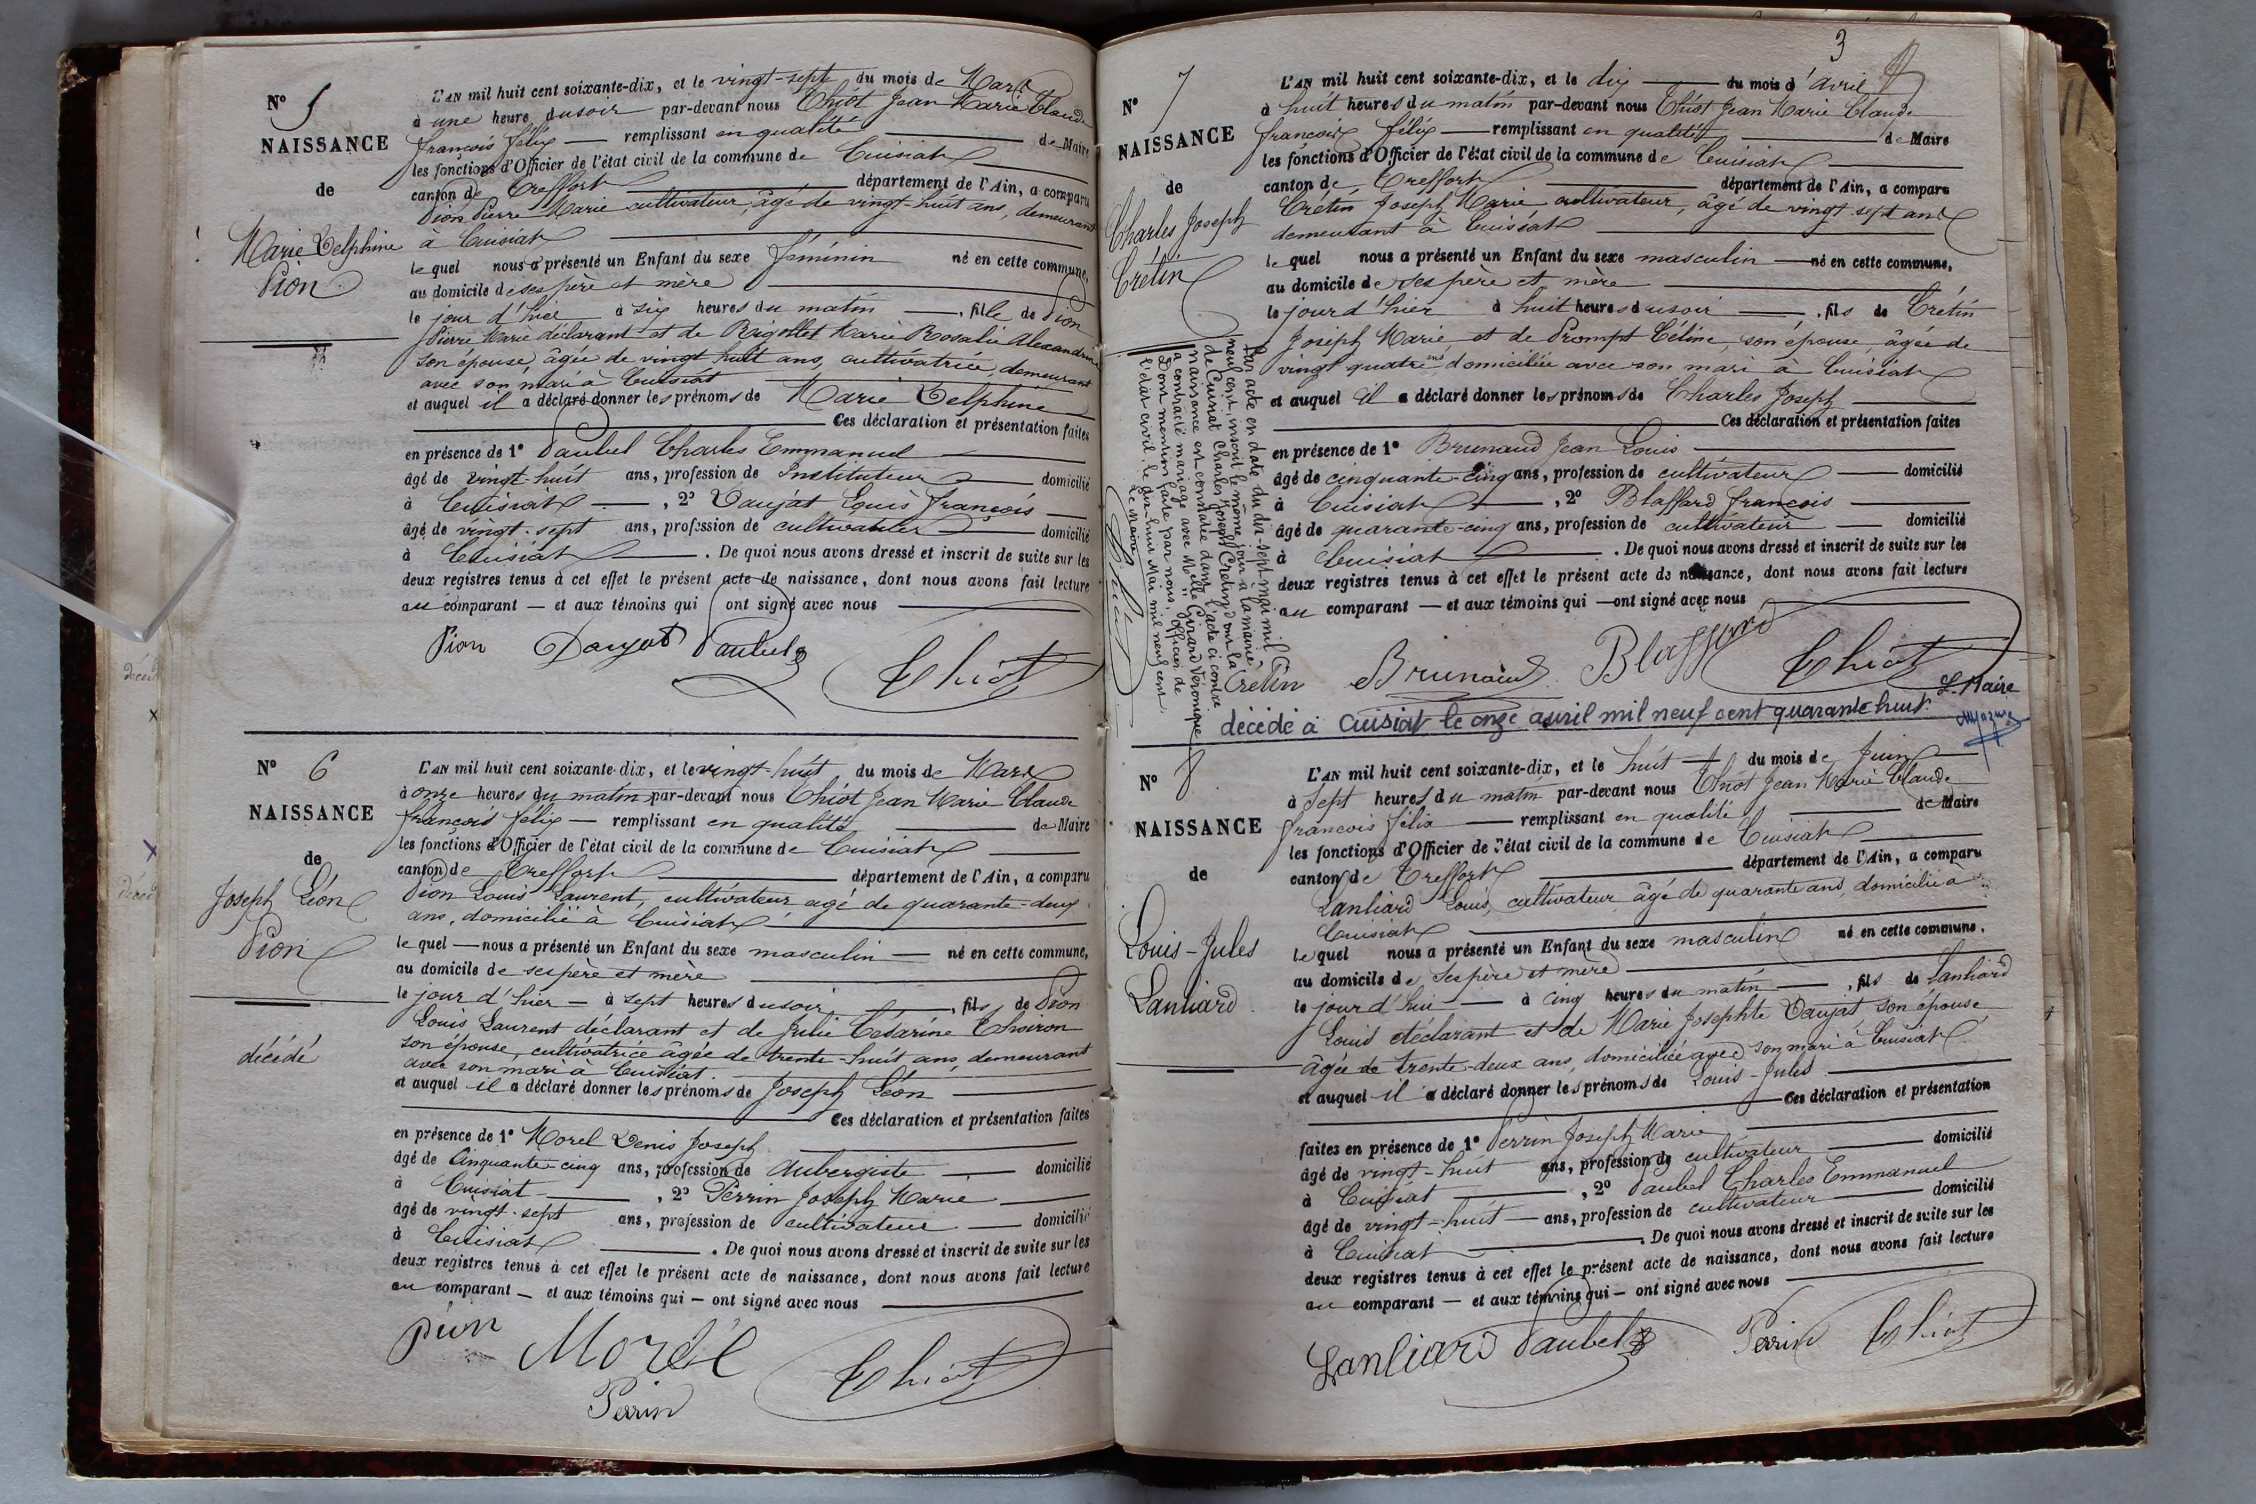 N° 5
NAISSANCE
de
Marie Delphine
Pion
L'AN mil huit cent soixante-dix, et le vingt-sept du mois de Mars
à une heure du soir par-devant nous Chiot Jean Marie Claude
françois félix — remplissant en qualité de Maire
les fonctions d'Officier de l'état civil de la commune de Cuisiat
canton de Treffort département de l'Ain, a comparu
Pion Pierre Marie cultivateur, âgé de vingt huit ans, demeurant
à Cuisiat
le quel nous a présenté un Enfant du sexe féminin né en cette commune,
au domicile de ses père et mère
le jour d'hier à six heures du matin, fille de Pion
Pierre Marie déclarant et de Rigollet Marie Rosalie Alexandrine
son épouse, âgée de vingt huit ans, cultivatrice, demeurant
avec son mari à Cuisiat
et auquel il a déclaré donner les prénoms de Marie Delphine
Ces déclaration et présentation faites
en présence de 1° Paubel Charles Emmanuel
âgé de vingt-huit ans, profession de Instituteur domicilié
à Cuisiat —, 2° Daujat Louis françois
âgé de vingt-sept ans, profession de cultivateur domicilié
à Cuisiat. De quoi nous avons dressé et inscrit de suite sur les
deux registres tenus à cet effet le présent acte de naissance, dont nous avons fait lecture
au comparant — et aux témoins qui ont signé avec nous
Pion Daujat Paubel
Chiot
N° 6
NAISSANCE
de
Joseph Léon
Pion
décédé
L'AN mil huit cent soixante-dix, et le vingt-huit du mois de Mars
à onze heures du matin par-devant nous Chiot Jean Marie Claude
françois félix — remplissant en qualité de Maire
les fonctions d'Officier de l'état civil de la commune de Cuisiat
canton de Treffort département de l'Ain, a comparu
Pion Louis Laurent, cultivateur agé de quarante-deux
ans, domicilié à Cuisiat
le quel — nous a présenté un Enfant du sexe masculin — né en cette commune,
au domicile de ses père et mère
le jour d'hier — à sept heures du soir, fils de Pion
Louis Laurent déclarant et de Julie Césarine Thoiron
son épouse, cultivatrice âgée de trente-huit ans, demeurant
avec son mari à Cuisiat.
et auquel il a déclaré donner les prénoms de Joseph Léon
Ces déclaration et présentation faites
en présence de 1° Morel Denis Joseph
âgé de Cinquante-cinq ans, profession de Aubergiste — domicilié
à Cuisiat —, 2° Perrin Joseph Marie
âgé de vingt-sept ans, profession de cultivateur — domicilié
à Cuisiat. De quoi nous avons dressé et inscrit de suite sur les
deux registres tenus à cet effet le présent acte de naissance, dont nous avons fait lecture
au comparant — et aux témoins qui — ont signé avec nous
pion Morel
Chiot
Perrin
3
N° 7
NAISSANCE
de
Charles Joseph
Crétin
L'AN mil huit cent soixante-dix, et le dix — du mois d'avril
à huit heures du matin par-devant nous Chiot Jean Marie Claude
françois félix — remplissant en qualité de Maire
les fonctions d'Officier de l'état civil de la commune de Cuisiat
canton de Treffort département de l'Ain, a comparu
Crétin Joseph Marie cultivateur, âgé de vingt-sept ans
demeurant à Cuisiat
le quel nous a présenté un Enfant du sexe masculin — né en cette commune,
au domicile de ses père et mère
le jour d'hier à huit heures du soir —, fils de Crétin
Joseph Marie, et de Prompt Céline, son épouse, âgée de
vingt quatre ans domiciliée avec son mari à Cuisiat
et auquel il a déclaré donner les prénoms de Charles Joseph
Ces déclaration et présentation faites
en présence de 1° Brunaud Jean Louis
âgé de cinquante-cinq ans, profession de cultivateur — domicilié
à Cuisiat —, 2° Blaffard françois
âgé de quarante-cinq ans, profession de cultivateur — domicilié
à Cuisiat. De quoi nous avons dressé et inscrit de suite sur les
deux registres tenus à cet effet le présent acte de naissance, dont nous avons fait lecture
au comparant — et aux témoins qui — ont signé avec nous
Par acte en date du dix-sept mai mil
neuf cent, inscrit le même jour à la mairie
de Cuisiat Charles Joseph Cretin dont la
naissance est constatée dans l'acte ci contre
a contracté mariage avec Melle Girard Véronique
Dont mention faite par nous, officier de
l'état civil le dix-huit Mai mil neuf cent.
Le Maire
Cretin Brunaud Blaffard Chiot
décédé à Cuisiat le onze avril mil neuf cent quarante huit.
Le Maire
N° 8
NAISSANCE
de
Louis-Jules
Lanliard
L'AN mil huit cent soixante-dix, et le huit — du mois de Juin
à sept heures du matin par-devant nous Chiot Jean Marie Claude
françois félix — remplissant en qualité de Maire
les fonctions d'Officier de l'état civil de la commune de Cuisiat
canton de Treffort département de l'Ain, a comparu
Lanliard Louis, cultivateur âgé de quarante ans, domicilié à
Cuisiat
le quel nous a présenté un Enfant du sexe masculin né en cette commune,
au domicile de ses père et mère
le jour d'hui — à cinq heures du matin —, fils de Lanliard
Louis déclarant et de Marie Josephte Daujat son épouse
âgée de trente-deux ans, domiciliée avec son mari à Cuisiat
et auquel il a déclaré donner les prénoms de Louis-Jules
Ces déclaration et présentation
faites en présence de 1° Perrin Joseph Marie
âgé de vingt-huit ans, profession de cultivateur domicilié
à Cuisiat, 2° Paubel Charles Emmanuel
âgé de vingt-huit — ans, profession de cultivateur domicilié
à Cuisiat. De quoi nous avons dressé et inscrit de suite sur les
deux registres tenus à cet effet le présent acte de naissance, dont nous avons fait lecture
au comparant — et aux témoins qui — ont signé avec nous
Lanliard Paubel Perrin Chiot